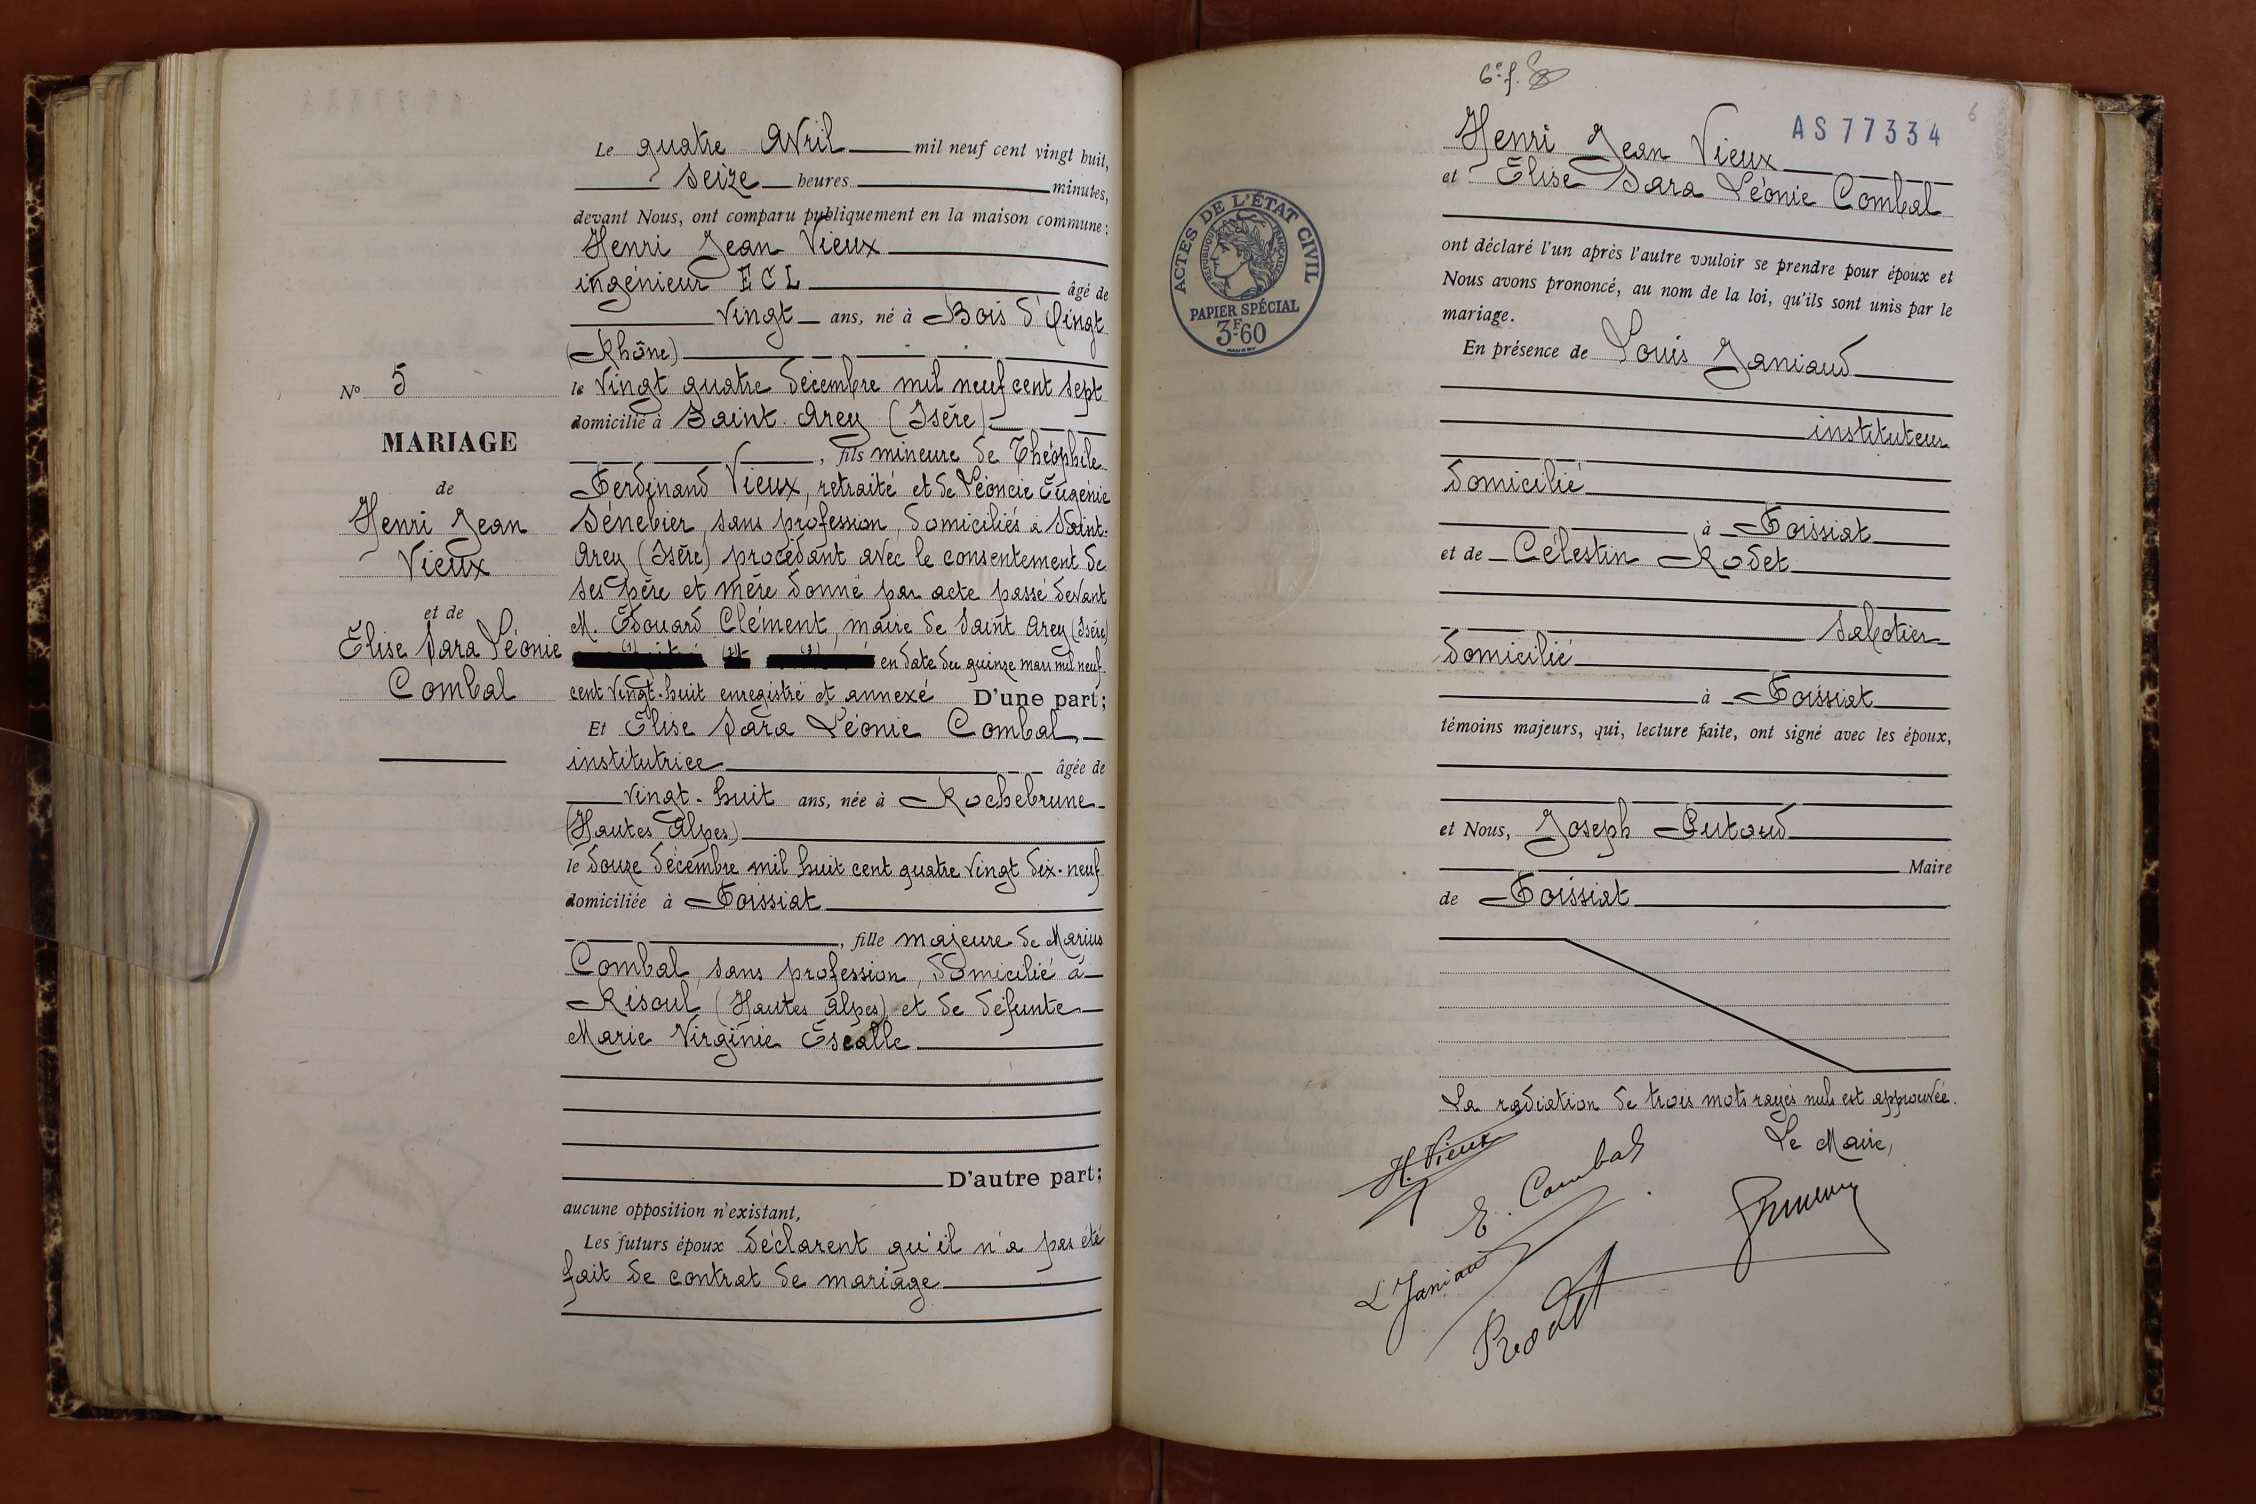 Le quatre Avril mil neuf cent vingt huit,
seize heures minutes,
devant Nous, ont comparu publiquement en la maison commune :
Henri Jean Vieux
ingénieur E C L âgé de
vingt ans, né à Bois d'Oingt
(Rhône)
le vingt quatre décembre mil neuf cent sept
domicilié à Saint Arey (Isère)
, fils mineure de Théophile
Ferdinand Vieux, retraité et de Léoncie Eugénie
Sénebier, sans profession, domiciliés à Saint-
Arey (Isère) procédant avec le consentement de
ses père et mère donné par acte passé devant
M. Edouard Clément, maire de Saint Arey (Isère)
(1) (2) (3) en date du quinze mars mil neuf
cent vingt-huit enregistré et annexé D'une part ;
Et Elise Sara Léonie Combal,
institutrice âgée de
vingt-huit ans, née à Rochebrune
(Hautes Alpes)
le douze décembre mil huit cent quatre vingt dix-neuf
domiciliée à Foissiat
, fille majeure de Marius
Combal, sans profession, domicilié à
Risoul, (Hautes Alpes) et de défunte
Marie Virginie Escalle
D'autre part ;
aucune opposition n'existant,
Les futurs époux déclarent qu'il n'a pas été
fait de contrat de mariage
No 5
MARIAGE
de
Henri Jean
Vieux
et de
Elise Sara Léonie
Combal
6e f.
6
AS 77334
Henri Jean Vieux
et Elise Sara Léonie Combal
ACTES DE L'ÉTAT CIVIL
RÉPUBLIQUE FRANÇAISE
PAPIER SPÉCIAL
3F60
ont déclaré l'un après l'autre vouloir se prendre pour époux et
Nous avons prononcé, au nom de la loi, qu'ils sont unis par le
mariage.
En présence de Louis Janiaud
instituteur
domicilié
à Foissiat
et de Célestin Rodet
sabotier
domicilié
à Foissiat
témoins majeurs, qui, lecture faite, ont signé avec les époux,
et Nous, Joseph Putoud
Maire
de Foissiat
La radiation de trois mots rayés nuls est approuvée.
Le Maire,
H. Vieux
E. Combal
L Janiaud
Rodet